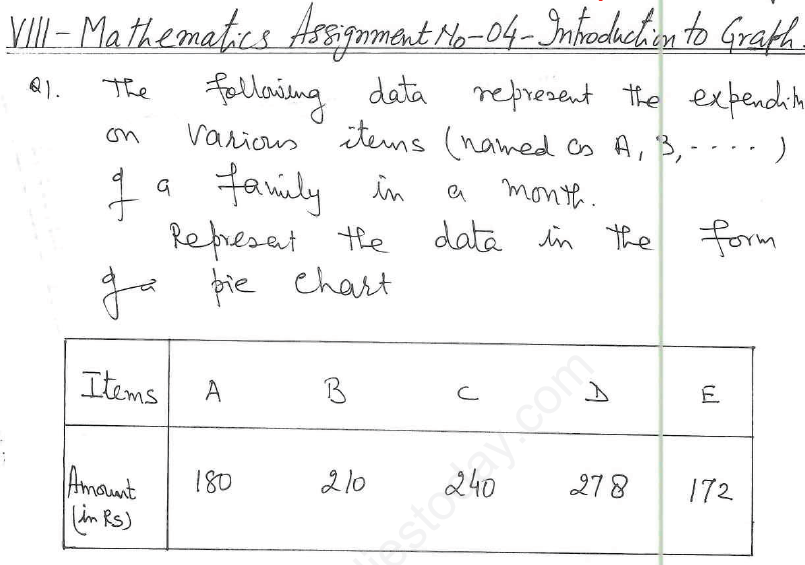 VIII - Mathematics Assignment No-04-Introduction to Graph.
Q1. The following data represent the
on various items (named as A, B, - - - - )
of a family in a month.
Represent the data in the form
of a pie chart
Items A B C D E
Amount 180 210 240 278 172
(in Rs)